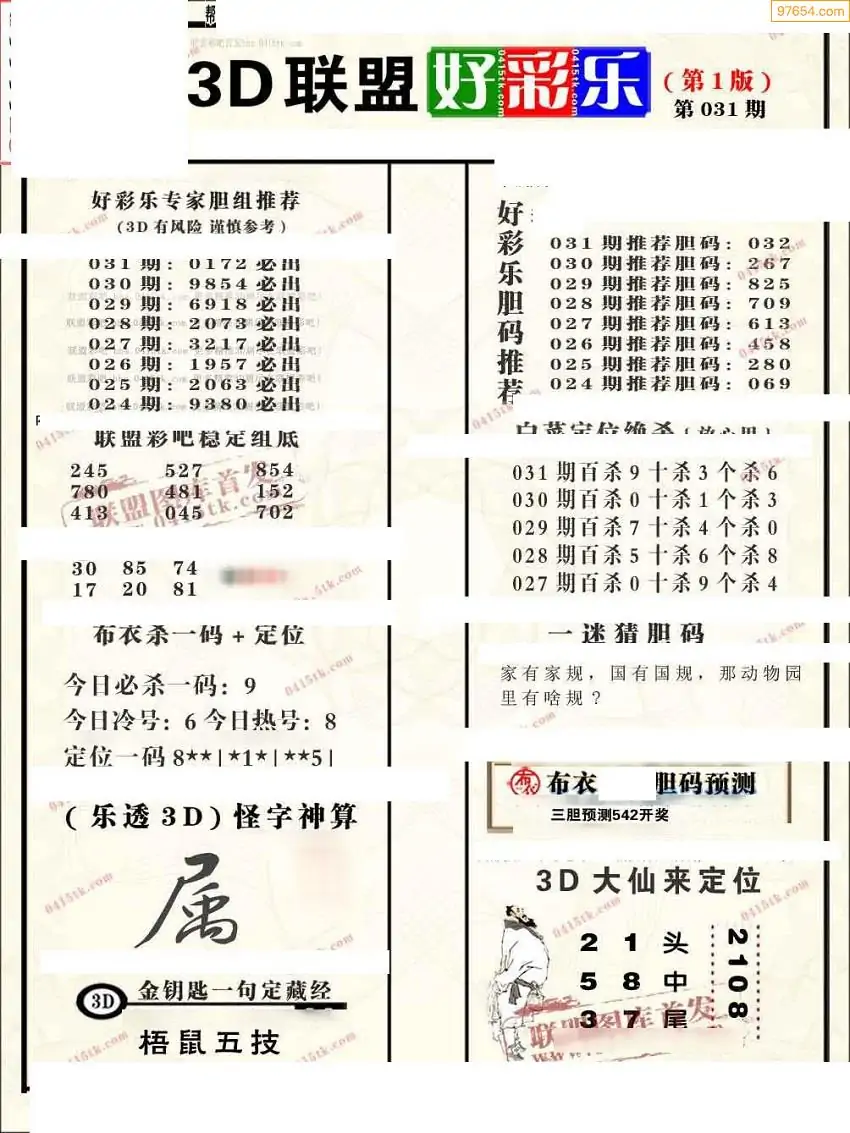 97654.com
帮
3D联盟好彩乐
(第1版)
第031期
好彩乐专家胆组推荐
(3D有风险 谨慎参考)
031期: 0172必出
030期: 9854必出
029期: 6918必出
028期: 2073必出
027期: 3217必出
026期: 1957必出
025期: 2063必出
024期: 9380必出
联盟彩吧稳定组底
245 527 854
780 481 152
413 045 702
30 85 74
17 20 81
布衣杀一码+定位
今日必杀一码: 9
今日冷号: 6 今日热号: 8
定位一码 8**|*1*|**5|
(乐透3D)怪字神算
属
3D 金钥匙一句定藏经
梧鼠五技
好彩乐胆码推荐
031期推荐胆码: 032
030期推荐胆码: 267
029期推荐胆码: 825
028期推荐胆码: 709
027期推荐胆码: 613
026期推荐胆码: 458
025期推荐胆码: 280
024期推荐胆码: 069
031期百杀9十杀3个杀6
030期百杀0十杀1个杀3
029期百杀7十杀4个杀0
028期百杀5十杀6个杀8
027期百杀0十杀9个杀4
一迷猜胆码
家有家规，国有国规，那动物园
里有啥规？
布衣 胆码预测
三胆预测542开奖
3D大仙来定位
2 1 头
5 8 中
3 7 尾
2108
联盟图库首发
0415tk.com